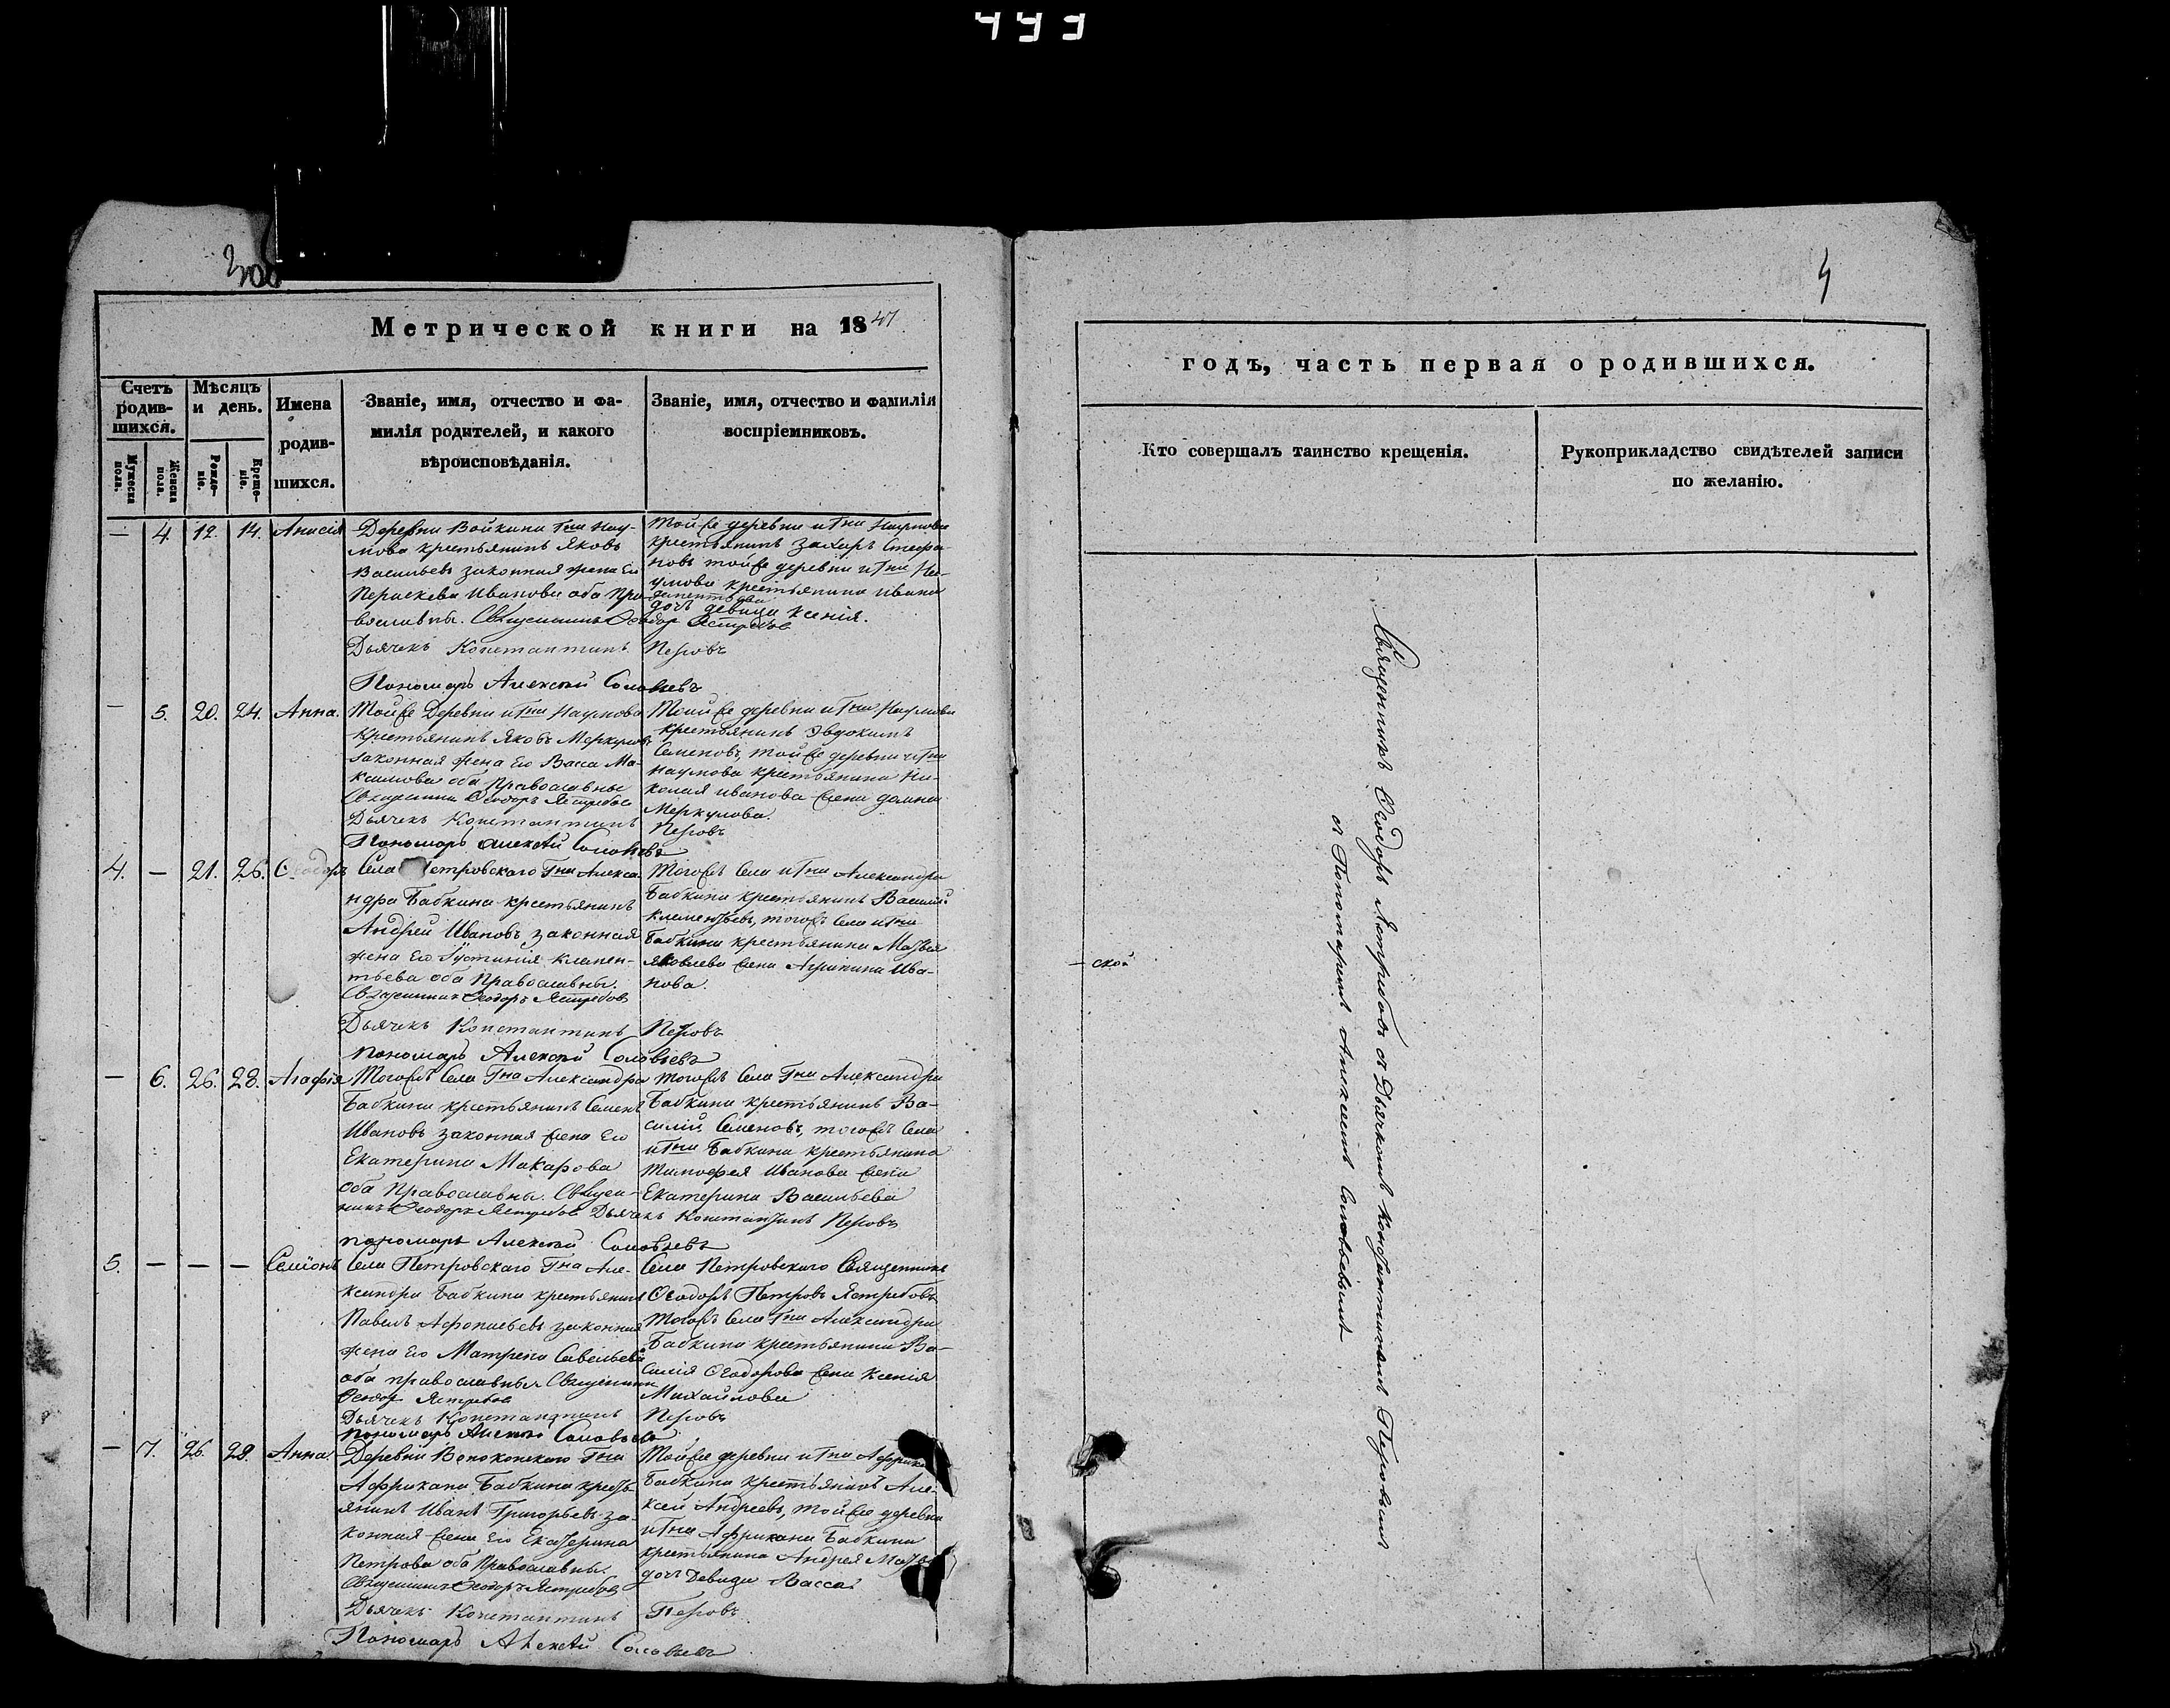 493
308
4
Метрической книги на 1841
Счетъ родив-
шихся.
Мѣсяцъ
и день.
Имена
родив-
шихся.
Званіе, имя, отчество и фа-
милія родителей, и какого
вѣроисповѣданія.
Званіе, имя, отчество и фамилія
воспріемниковъ.
Мужеска
пола.
Женска
пола.
Рожде-
ніе.
Креще-
ніе.
— 4 12. 14. Анисія
Деревни Войкина Гна Нау-
мова крестьянинъ Яковъ
Васильевъ законная жена Его
Параскева Иванова оба Пра-
вославны. Священникъ Ѳеодор Ястребов
Дьячекъ Константинъ Перовъ
Пономарь Алексѣй Соловьевъ
Той же деревни и Гна Наумова
крестьянинъ Захаръ Стефа-
новъ той же деревни и Гна На-
умова крестьянина Ивана
дочь девица Ксенія.
— 5. 20. 24. Анна.
Той же Деревни и Гна Наумова
крестьянинъ Яковъ Меркуловъ
законная жена Его Васса Ма-
ксимова оба Православны
Священникъ Ѳеодоръ Ястребов
Дьячекъ Константинъ Перовъ
Пономарь Алексѣй Соловьевъ
Той же деревни и Гна Наумова
крестьянинъ Эвдокимъ
Семеновъ, той же деревни и Гна
Наумова крестьянина Ни-
колая Иванова жена Домна
Меркулова.
4. — 21. 26. Ѳеодоръ
Села Петровскаго Гна Алекса-
ндра Бабкина крестьянинъ
Андрей Ивановъ законная
жена Его Іустинія Клемен-
тьева оба Православны.
Священникъ Ѳеодоръ Ястребов
Дьячекъ Константинъ Перовъ
пономарь Алексѣй Соловьевъ
Тогожъ Села и Гна Александра
Бабкина крестьянинъ Василій
Клементьевъ, тогожъ Села и Гна
Бабкина крестьянина Матвея
Яковлева жена Агрипина Ива-
нова.
— 6. 26. 28. Агафія
Тогожъ Села Гна Александра
Бабкина крестьянинъ Семенъ
Ивановъ законная жена Его
Екатерина Макарова
оба Православны. Священ-
никъ Ѳеодоръ Ястребов Дьячекъ Константинъ Перовъ
пономарь Алексѣй Соловьевъ
Тогожъ Села Гна Александра
Бабкина крестьянинъ Ва-
силій Семеновъ, тогожъ Села
и Гна Бабкина крестьянина
Тимофея Иванова жена
Екатерина Васильева
5. — — — Семіонъ
Села Петровскаго Гна Але-
ксандра Бабкина крестьянинъ
Павелъ Афонасьевъ законная
жена Его Матрена Савельева
оба православны Священникъ
Ѳеодор Ястребов
Дьячекъ Константинъ Перовъ
пономарь Алексѣй Соловьевъ
Села Петровскаго Священникъ
Ѳеодоръ Петровъ Ястребовъ
Тогожъ Села Гна Александра
Бабкина крестьянина Ва-
силія Ѳеодорова жена Ксенія
Михайлова
— 7. 26. 28. Анна.
Деревни Гна
Африкана Бабкина кресть-
янинъ Иванъ Григорьевъ за-
конная жена Его Екатерина
Петрова оба Православны.
Священникъ Ѳеодоръ Ястребов
Дьячекъ Константинъ Перовъ
Пономарь Алексѣй Соловьевъ
Той же деревни и Гна Африкана
Бабкина крестьянинъ Але-
ксей Андреевъ, той же деревни
и Гна Африкана Бабкина
крестьянина Андрея
дочь Девица Васса
годъ, часть первая о родившихся.
Кто совершалъ таинство крещенія.
Рукоприкладство свидѣтелей записи
по желанію.
Священникъ Ѳеодоръ Ястребовъ съ Дьячкомъ Константиномъ Перовымъ
и Пономаремъ Алексеемъ Соловьевымъ